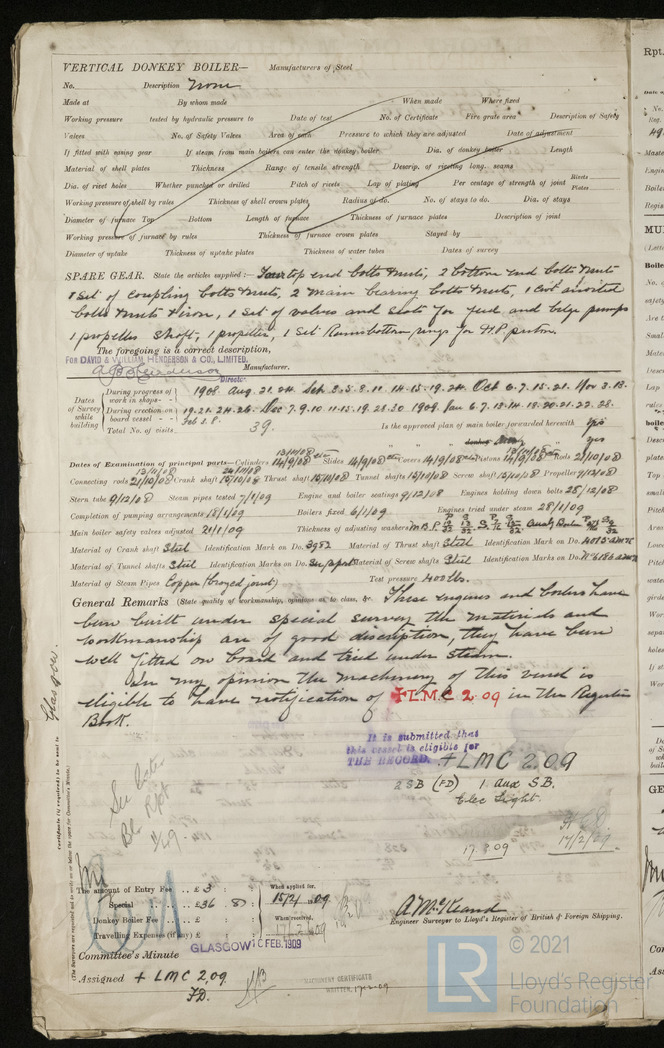 VERTICAL DONKEY BOILER— Manufacturers of Steel
No. Description None
Made at By whom made When made Where fixed
Working pressure tested by hydraulic pressure to Date of test No. of Certificate Fire grate area Description of Safety
Valves No. of Safety Valves Area of each Pressure to which they are adjusted Date of adjustment
If fitted with easing gear If steam from main boilers can enter the donkey boiler Dia. of donkey boiler Length
Material of shell plates Thickness Range of tensile strength Descrip. of riveting long. seams
Dia. of rivet holes Whether punched or drilled Pitch of rivets Lap of plating Per centage of strength of joint Rivets Plates
Working pressure of shell by rules Thickness of shell crown plates Radius of do. No. of stays to do. Dia. of stays
Diameter of furnace Top Bottom Length of furnace Thickness of furnace plates Description of joint
Working pressure of furnace by rules Thickness of furnace crown plates Stayed by
Diameter of uptake Thickness of uptake plates Thickness of water tubes Dates of survey
SPARE GEAR. State the articles supplied:— Four top end bolts & nuts, 2 bottom end bolts & nuts
1 set of coupling bolts & nuts, 2 main bearing bolts & nuts, 1 cwt assorted
bolts & nuts & iron, 1 set of valves and seats for feed and bilge pumps
1 propeller shaft, 1 propeller, 1 set Ramsbottom rings for H.P. piston.
The foregoing is a correct description,
FOR DAVID & WILLIAM HENDERSON & CO., LIMITED.
Henderson Manufacturer.
Director.
Dates of Survey while building
During progress of work in shops - - 1908 Aug. 21. 24. Sep. 2. 5. 8. 11. 14. 15. 19. 24. Oct 6. 7. 13. 21. Nov 3. 13.
During erection on board vessel - - 19. 21. 24. 26. Dec 7. 9. 10. 11. 15. 19. 28. 30 1909. Jan 6. 7. 13. 14. 18. 20. 21. 22. 28.
Feb 5. 8.
Total No. of visits 39. Is the approved plan of main boiler forwarded herewith yes
donkey yes
Dates of Examination of principal parts—Cylinders 14/9/08 Slides 14/9/08 Covers 14/9/08 Pistons 14/9/08 Rods 21/10/08
Connecting rods 21/10/08 Crank shaft 13/10/08 Thrust shaft 13/10/08 Tunnel shafts 13/10/08 Screw shaft 13/10/08 Propeller 9/12/08
Stern tube 9/12/08 Steam pipes tested 7/1/09 Engine and boiler seatings 9/12/08 Engines holding down bolts 28/12/08
Completion of pumping arrangements 18/1/09 Boilers fixed 6/1/09 Engines tried under steam 28/1/09
Main boiler safety valves adjusted 21/1/09 Thickness of adjusting washers
Material of Crank shaft Steel Identification Mark on Do. 3982 Material of Thrust shaft Steel Identification Mark on Do. 4013
Material of Tunnel shafts Steel Identification Marks on Do. See report Material of Screw shafts Steel Identification Marks on Do.
Material of Steam Pipes Copper (brazed joint) Test pressure 400 lbs.
General Remarks (State quality of workmanship, opinions as to class, &c. These engines and boilers have
been built under special survey, the materials and
workmanship are of good description, they have been
well fitted on board and tried under steam.
In my opinion the machinery of this vessel is
eligible to have notification of + LMC 2.09 in the Register
Book.
It is submitted that
this vessel is eligible for
THE RECORD. + LMC 2.09
2 SB (FD) 1 Aux SB.
Elec Light.
17.2.09
17/2/09
Glasgow.
Certificate (if required) to be sent to
(The Surveyors are requested not to write on or below the space for Committee's Minute.)
The amount of Entry Fee .. £ 3 : : When applied for,
Special .. £ 36 : 8 : 15/2/09
Donkey Boiler Fee .. £ : : When received,
Travelling Expenses (if any) £ : : 17/2/09
A McKeand
Engineer Surveyor to Lloyd's Register of British & Foreign Shipping.
Committee's Minute GLASGOW FEB. 1909
Assigned + LMC 2,09
FD.
MACHINERY CERTIFICATE
WRITTEN. 17.2.09
LR
© 2021
Lloyd's Register
Foundation
Rpt.